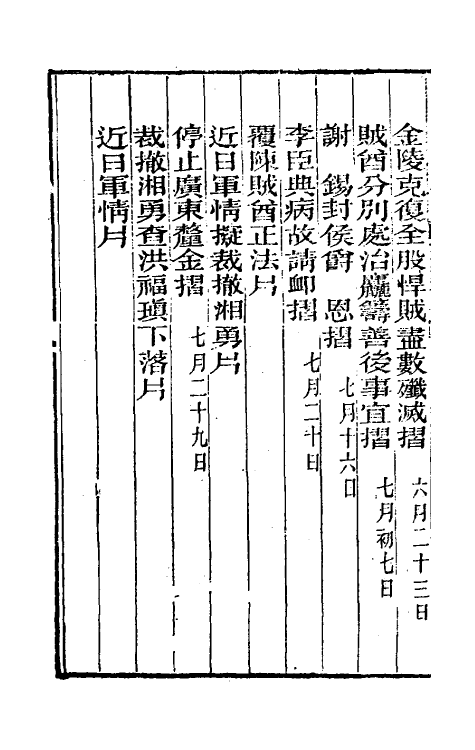 金陵克復全股悍賊盡數殲滅摺 六月二十三日
賊酋分別處治麤籌善後事宜摺 七月初七日
謝 錫封侯爵 恩摺 七月十六日
李臣典病故請卹摺 七月二十日
覆陳賊酋正法片
近日軍情擬裁撤湘勇片
停止廣東釐金摺 七月二十九日
裁撤湘勇查洪福瑱下落片
近日軍情片